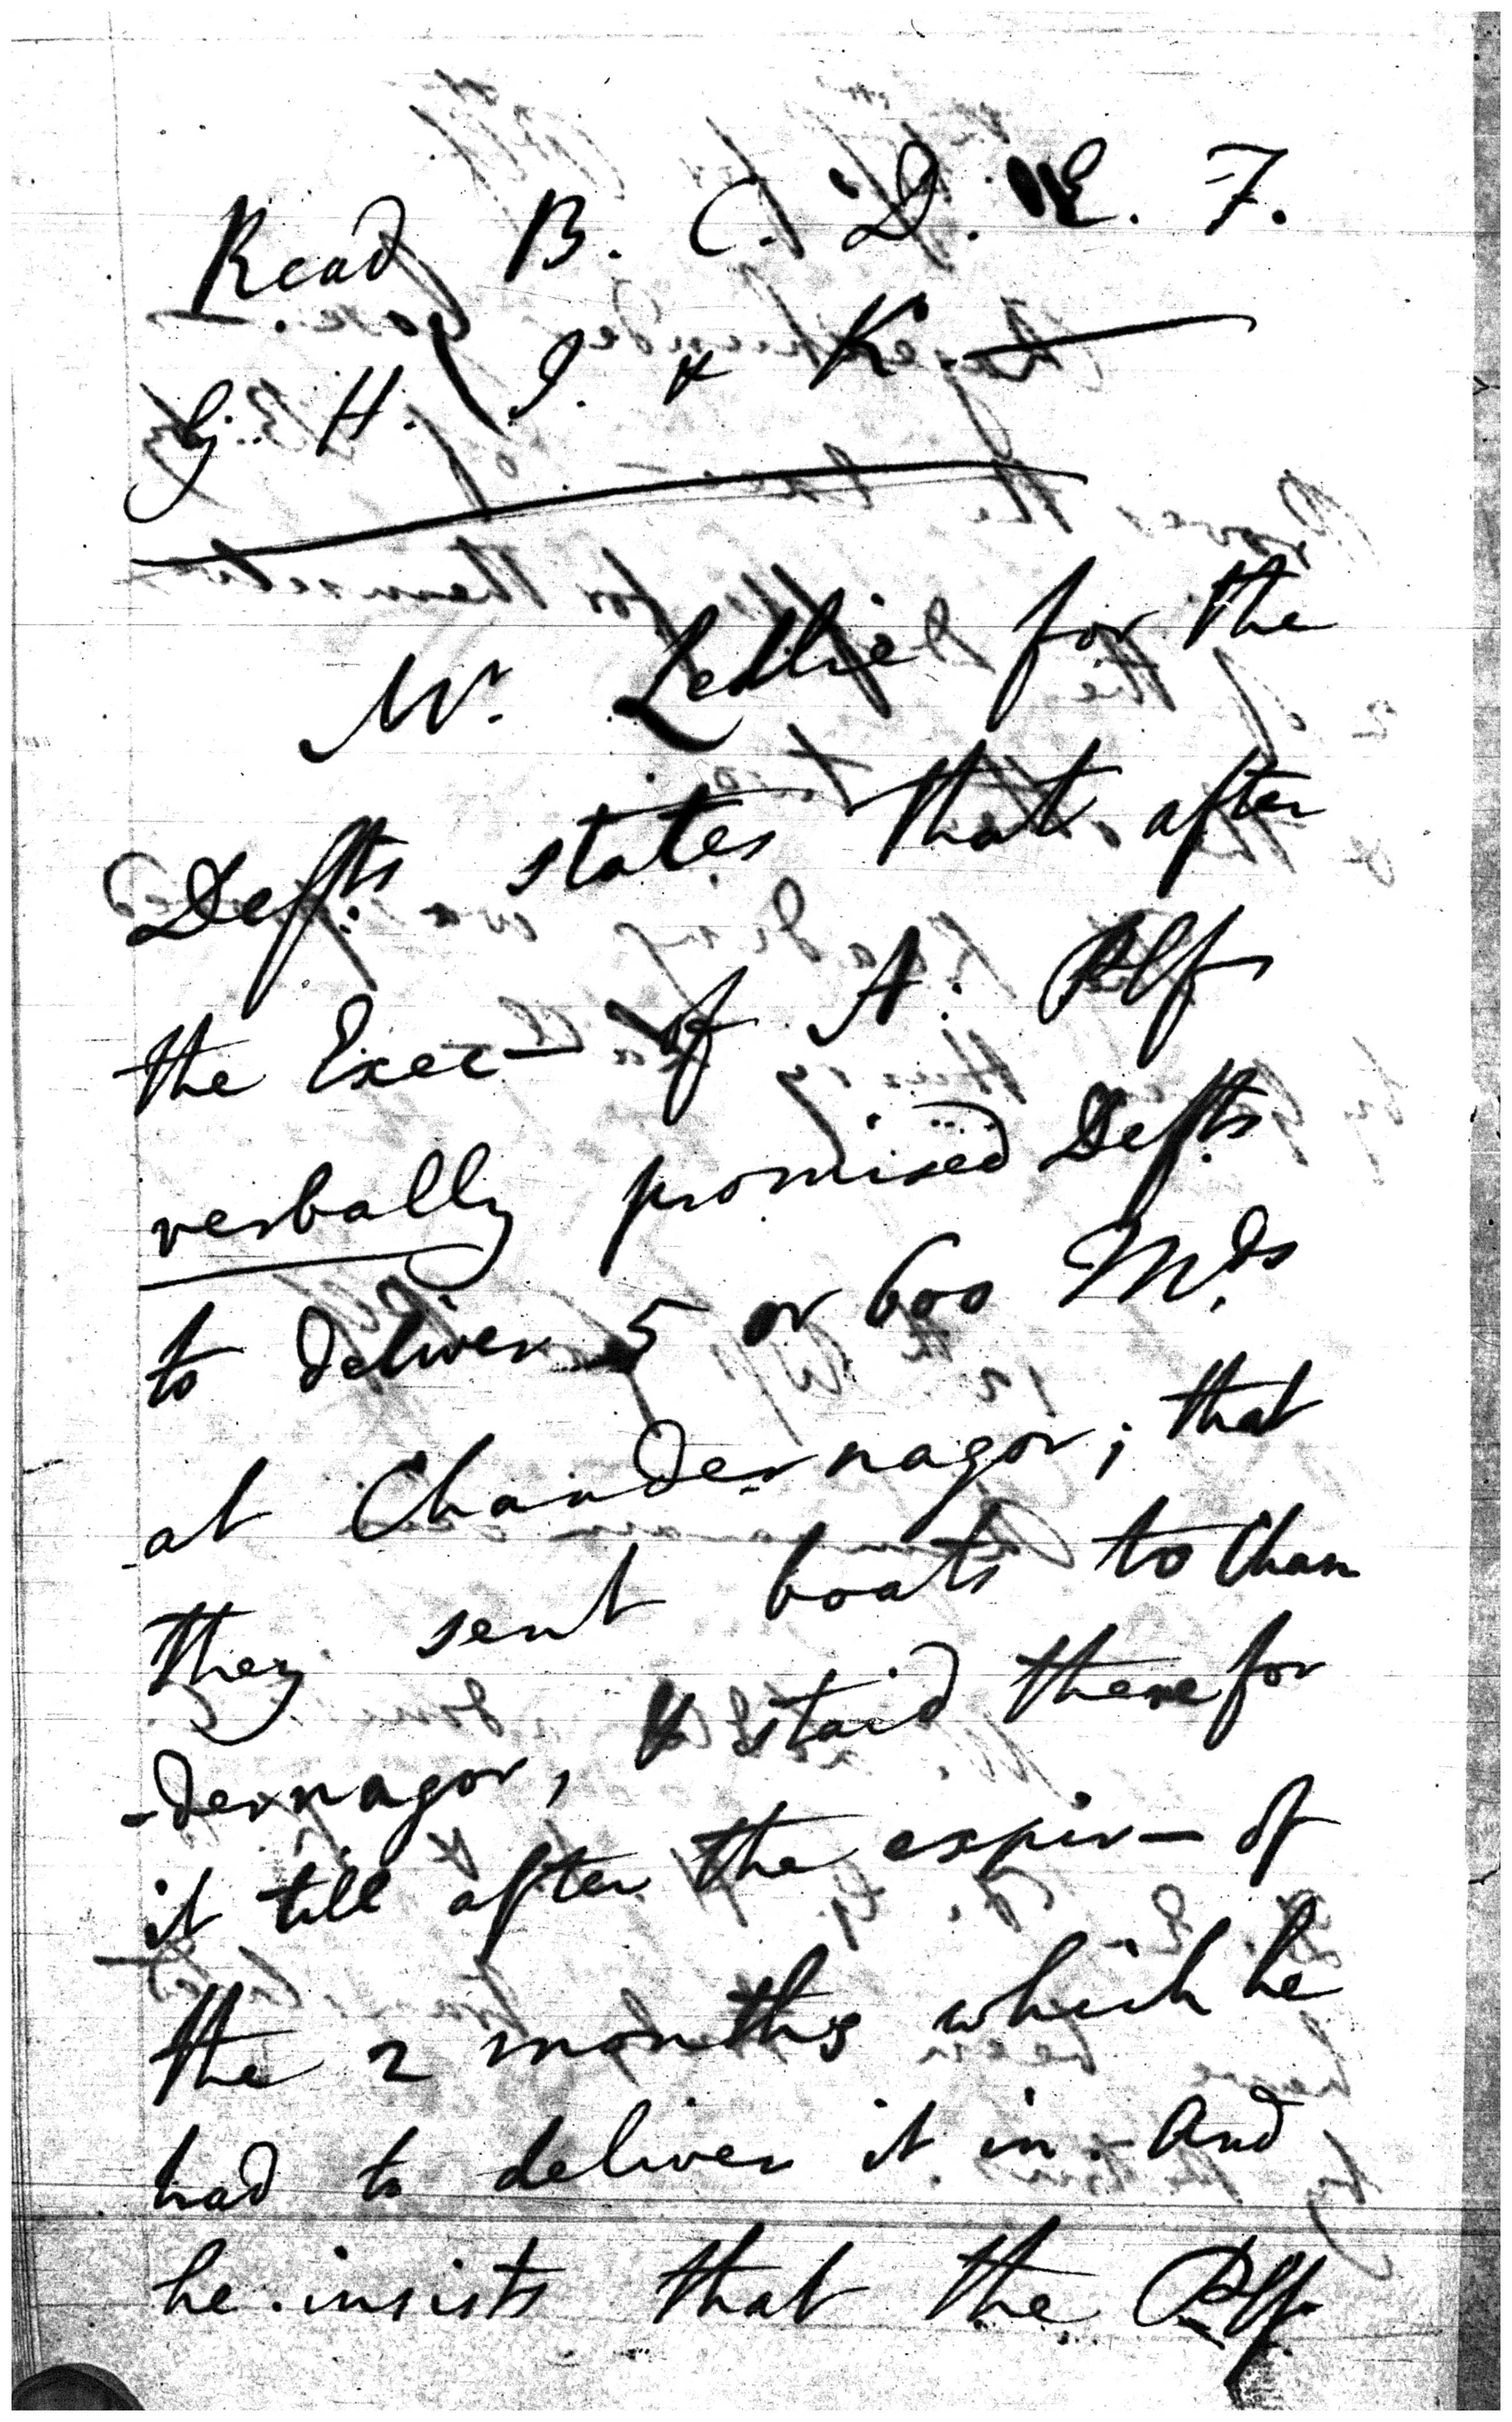 Read B. C. D. E. F.
G. H. I. & K.
Mr. Ledlie for the
Defts. states that after
the Exec— of A. Plf
verbally promised Defts.
to deliver 5 or 600 Mds
at Chandernagor; that
they sent boats to Chan
-dernagor, & staid there for
it till after the expir— of
the 2 months which he
had to deliver it in. And
he insists that the Plf.